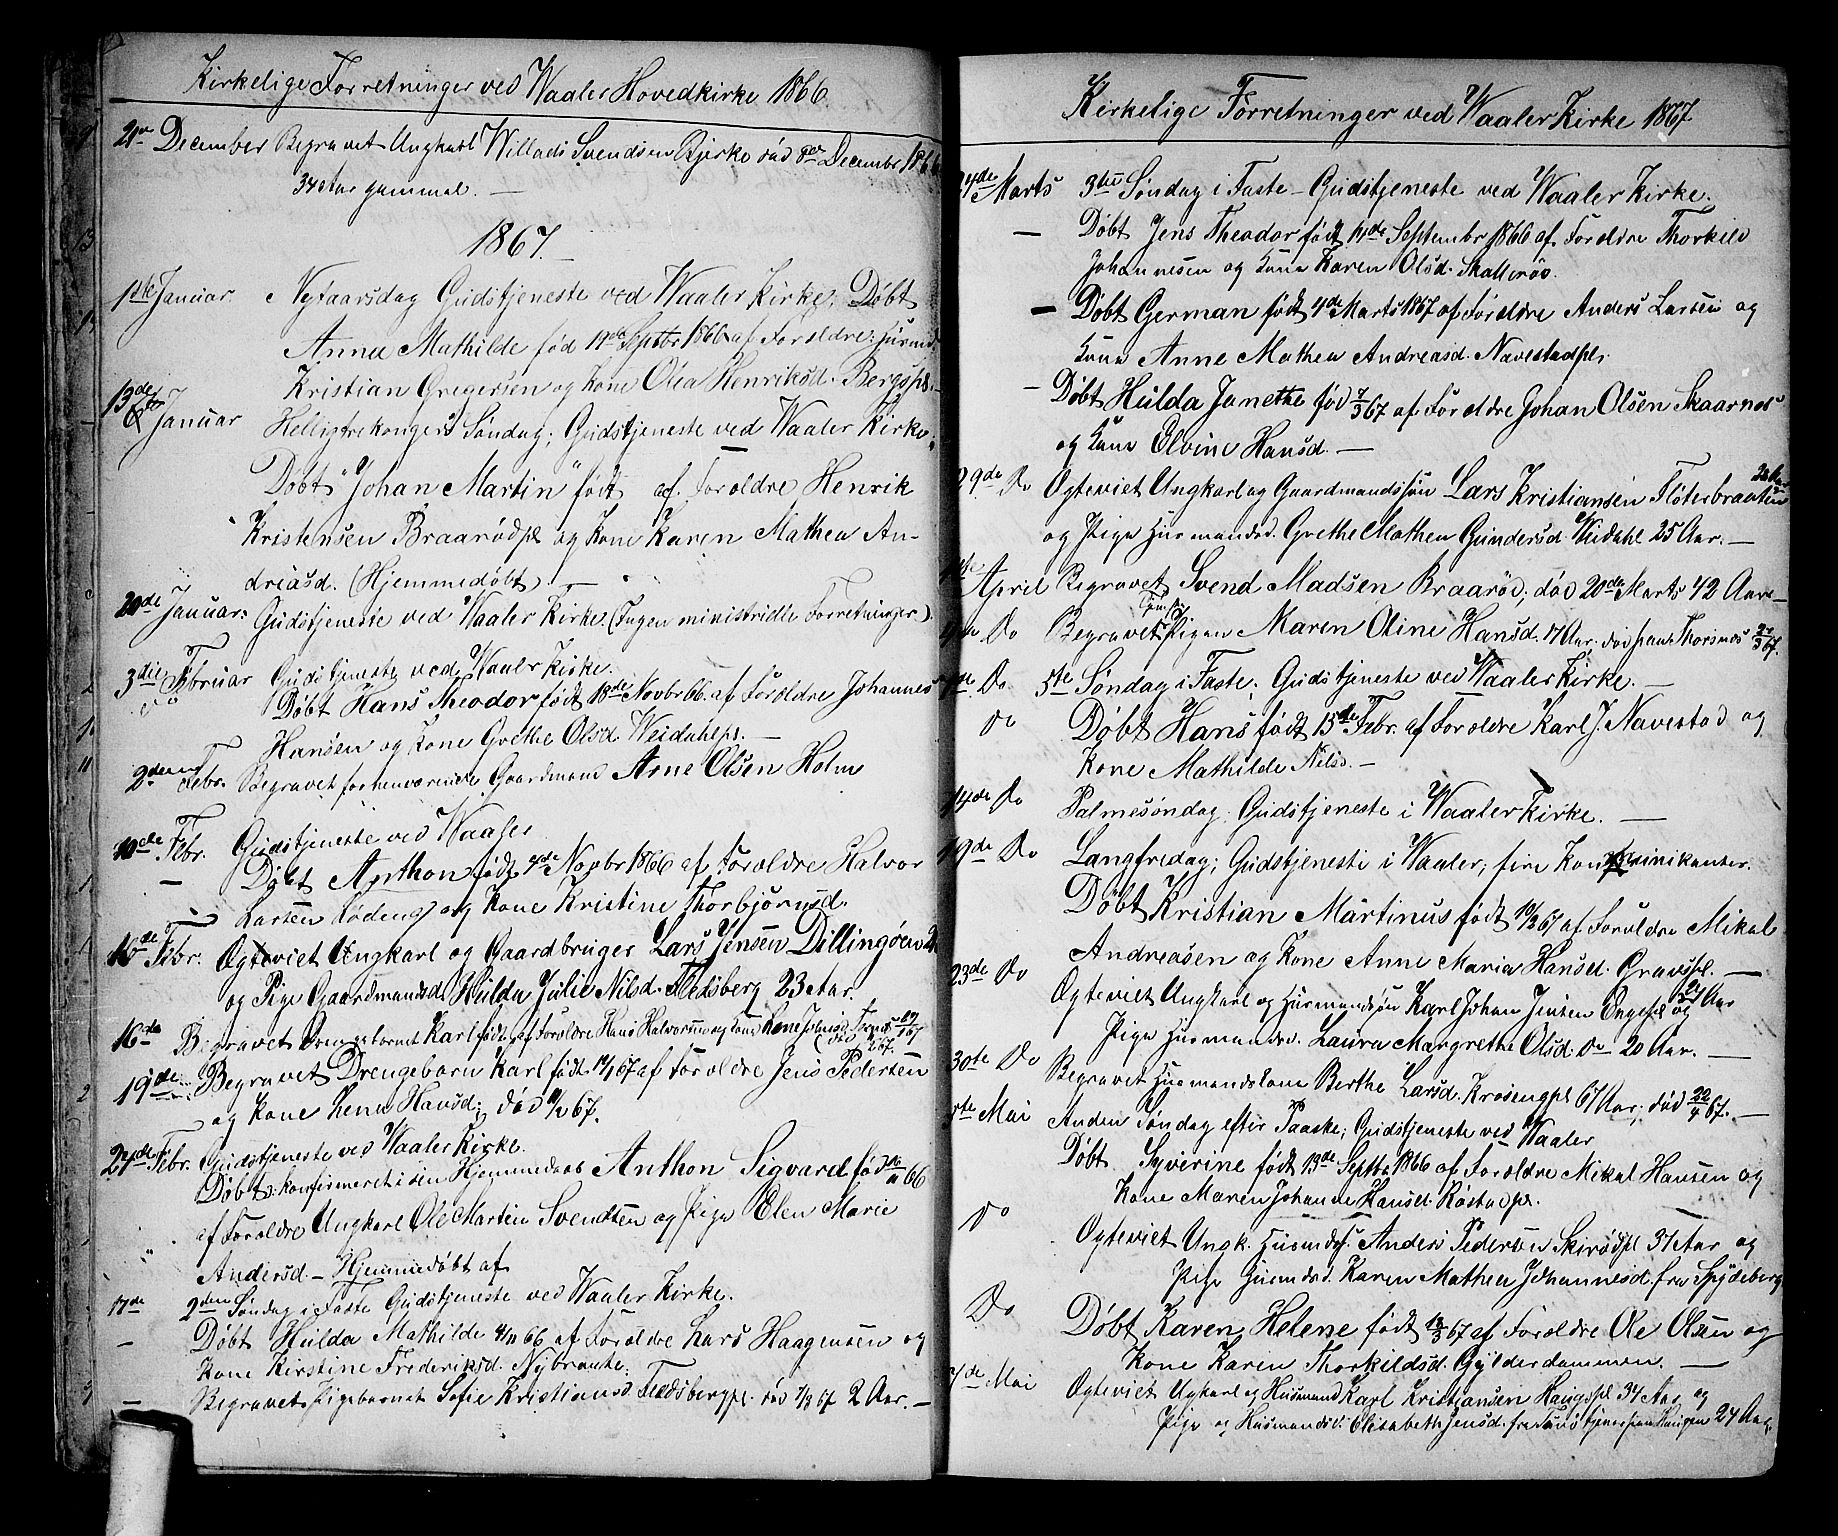 Kirkelige Forretninger ved Waaler Hovedkirke 1866
21de December Begravet Ungkarl Willads Svendsen Bjerke død 8de Decembr 1866
34 Aar gammel. —
1867.
1ste Januar Nytaarsdag Gudstjeneste ved Waaler Kirke; Døbt
Anna Mathilde fød 19de Septbr 1866 af Foroldre: Husmd.
Kristian Gregersen og Kone Olea Henriksd. Bergspl. —
13de Januar Helligtrekongers Søndag; Gudstjeneste ved Waaler Kirke.
Døbt "Johan Martin" født af Foroldre Henrik
Kristensen Braarødpl og Kone Karen Mathea An-
dreasd. (Hjemmedøbt) —
20de Januar: Gudstjeneste ved Waaler Kirke. (Ingen ministrielle Forretninger).
3die Februar Gudstjeneste ved Waaler Kirke.
Do Døbt Hans Theodor født 18de Novbr 66. af Foroldre Johannes
Hansen og Kone Grethe Olsd. Weidahlspl. —
2den Febr. Begravet forhenværende Gaardmand Arne Olsen Holm
10de Febr. Gudstjeneste ved Waaler
— Døbt Anthon født 4de Novbr 1866 af Foroldre Halvor
Larsen Lødeng og Kone Kristine Thorbjørnsd.
16de Febr. Ogteviet Ungkarl og Gaardbruger Lars Jensen Dillingøen
og Pige Gaardmandsd. Hulda Julie Nilsd. Fledsberg 23 Aar.
16de Begravet Drengebarnet Karl født af Foroldre Hans Halvorsen og Kone Lene Johnsd.
19de Begravet Drengebarn Karl født 12/1 67 af Foroldre Jens Pedersen
og Kone Lena Hansd; død 10/2 67.
24de Febr. Gudstjeneste ved Waaler Kirke.
Døbt: konfirmeret i den Hjemmedaab Anthon Sigvard fød 66
af Foroldre Ungkarl Ole Martin Svendsen og Pige Elen Marie
" Andersd. — Hjemmedøbt af
17de 2den Søndag i Faste Gudstjeneste ved Waaler Kirke.
— Døbt Hulda Mathilde 4/11 66 af Foroldre Lars Haagensen og
Kone Kirstine Frederiksd. Nybraate.
— Begravet Pigebarnet Sofie Kristiansd Fledsbergpl. død 7/3 67 2 Aar. —
Kirkelige Forretninger ved Waaler Kirke 1867
24de Marts 3die Søndag i Faste — Gudstjeneste ved Waaler Kirke.
— Døbt Jens Theodor født 14de Septembr 1866 af Foroldre Thorkild
Johannesen og Kone Karen Olsd. Skallerøs.
— Døbt German født 4de Marts 1867 af Foroldre Anders Larsen og
Kone Anne Mathea Andreasd. Navestadpl.
— Døbt Hulda Janethe fød 7/3 67 af Foroldre Johan Olsen Skaarnes
og Kone Elvine Hansd. —
29de Do Ogteviet Ungkarl og Gaardmandssøn Lars Kristiansen Fløterbraaten
og Pige Husmandsd. Grethe Mathea Gundersd. Weidahl 25 Aar. —
April Begravet Svend Madsen Braarød; død 20de Marts 42 Aar —
Do Begravet Pigen Maren Oline Hansd. 17 Aar; død paa Thorsnes 67.
Do 5te Søndag i Faste; Gudstjeneste ved Waaler Kirke. —
Do Døbt Hans født 15de Febr. af Foroldre Karl J. Navestad og
Kone Mathilde Nilsd. —
14de Do Palmesøndag; Gudstjeneste i Waaler Kirke. —
19de Do Langfredag; Gudstjeneste i Waaler; fire Kommunikanter.
Døbt Kristian Martinus født 67 af Foroldre Mikal
Andreasen og Kone Anne Maria Hansd. Gravspl. —
23de Do Ogteviet Ungkarl og Husmandssøn Karl Johan Jensen Engepl 27 Aar og
Pige Husmandsd. Laura Margrethe Olsd. Do 20 Aar. —
30te Do Begravet Husmandskone Berthe Larsd. Krosengpl 67 Aar; død 22/4 67. —
5te Mai Anden Søndag efter Paaske; Gudstjeneste ved Waaler
Døbt Syverine født 13de Septbr 1866 af Foroldre Mikal Hansen og
Kone Maren Johanne Hansd. Røstadpl.
Do Ogteviet Ungk. Husmdss. Anders Pedersen Skirødpl 37 Aar og
Pige Husmdsd. Karen Mathea Johannesd. fra Spydeberg
Do Døbt Karen Helene født 67 af Foroldre Ole Olsen og
Kone Karen Thorkildsd. Gylderdammen. —
Mai Ogteviet Ugkarl og Husmand Karl Kristjansen Haugspl 34 Aar og
Pige og Husmandsd: Elisabeth Jensd. tjener paa Haugen 24 Aar.